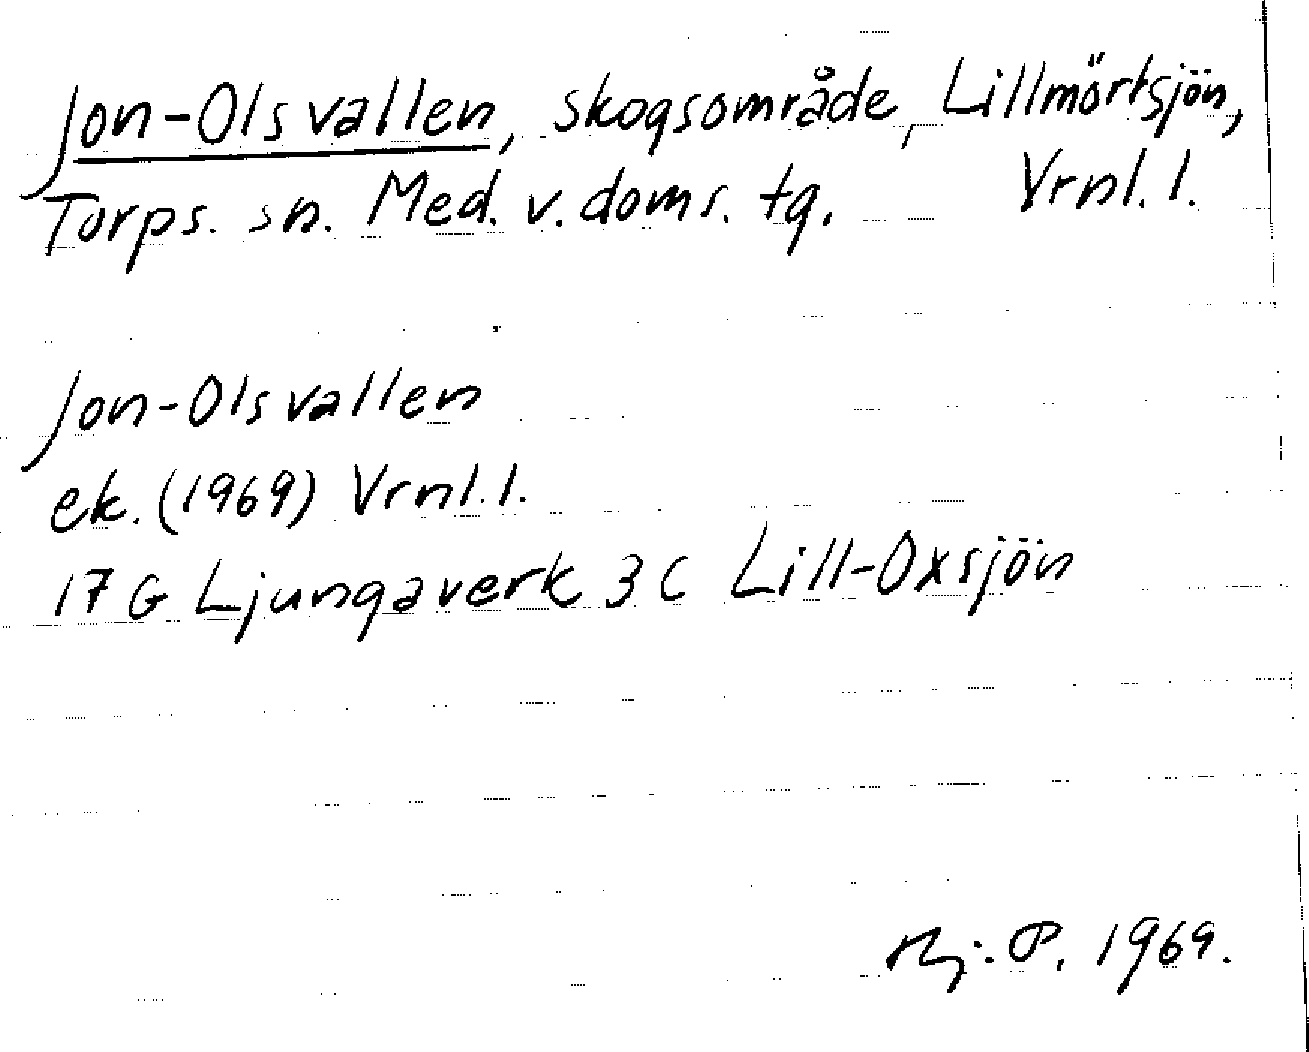 Jon-Olsvallen, skogsområde, Lillmörtsjön,
Torps. sn. Med. v. doms. tg. Vrnl. l.
Jon-Olsvallen
ek. (1969) Vrnl. l.
17 G Ljungaverk 3 C Lill-Oxsjön
P. 1969.